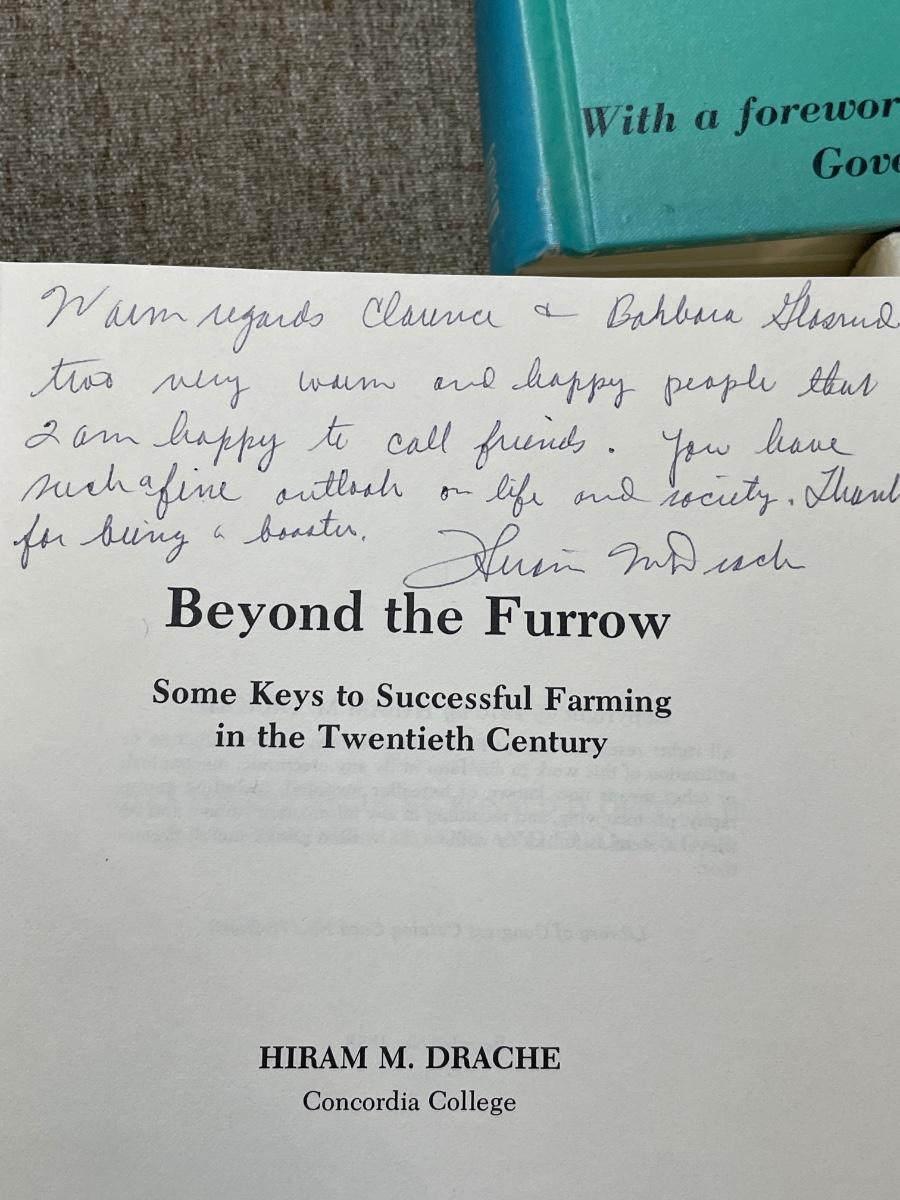 With a forewor
Gove
Warm regards Clarence & Bahbara Glasrud
two very warm and happy people that
I am happy to call friends. You have
such a fine outlook on life and society. Thank
for being a booster. Hiram M Drache
Beyond the Furrow
Some Keys to Successful Farming
in the Twentieth Century
HIRAM M. DRACHE
Concordia College